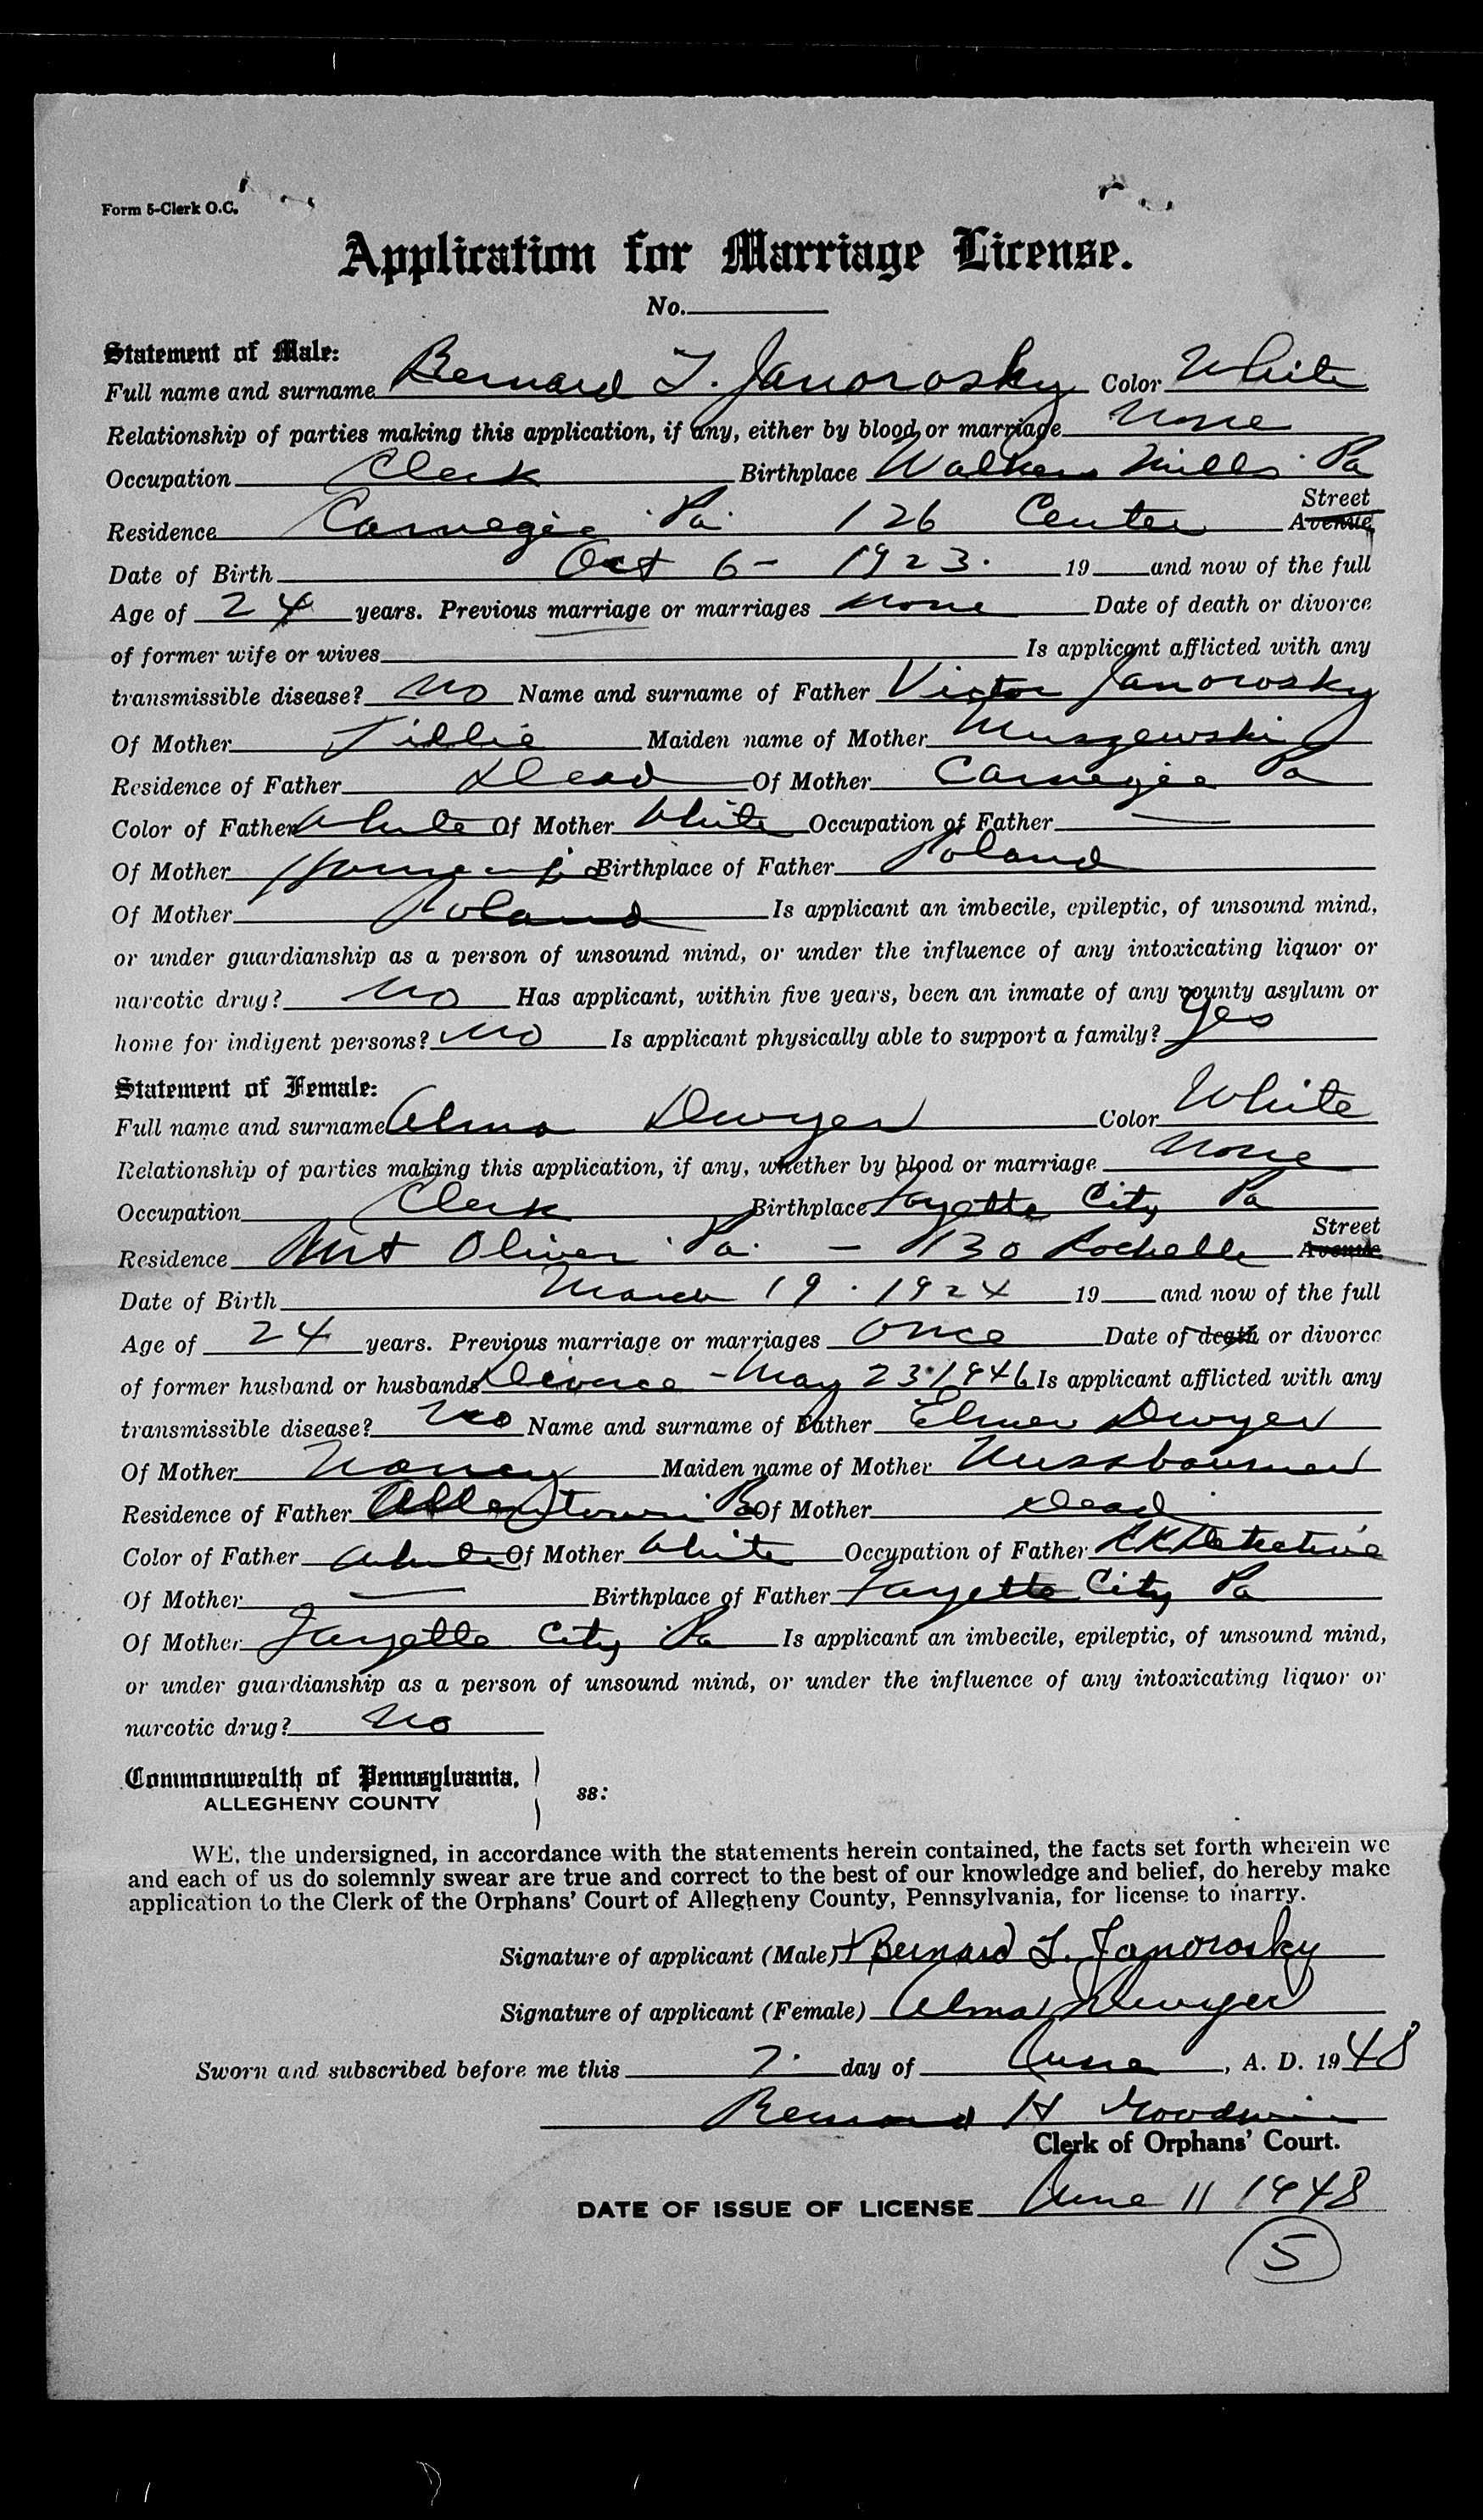 Form 5-Clerk O.C.
Application for Marriage License.
No.
Statement of Male:
Full name and surname Bernard T. Janorosky Color White
Relationship of parties making this application, if any, either by blood or marriage None
Occupation Clerk Birthplace Walkers Mills Pa
Street
Residence Carnegie Pa. 126 Center Avenue
Date of Birth Oct 6 - 1923. 19 and now of the full
Age of 24 years. Previous marriage or marriages none Date of death or divorce
of former wife or wives Is applicant afflicted with any
transmissible disease? No Name and surname of Father Victor Janorosky
Of Mother Tillie Maiden name of Mother Muszewski
Residence of Father Dead Of Mother Carnegie Pa
Color of Father White Of Mother White Occupation of Father —
Of Mother Birthplace of Father Poland
Of Mother Poland Is applicant an imbecile, epileptic, of unsound mind,
or under guardianship as a person of unsound mind, or under the influence of any intoxicating liquor or
narcotic drug? No Has applicant, within five years, been an inmate of any county asylum or
home for indigent persons? No Is applicant physically able to support a family? Yes
Statement of Female:
Full name and surname Alma Dwyer Color White
Relationship of parties making this application, if any, whether by blood or marriage None
Occupation Clerk Birthplace Fayette City Pa
Street
Residence Mt Oliver Pa. - 130 Rochelle Avenue
Date of Birth March 19 . 1924 19 and now of the full
Age of 24 years. Previous marriage or marriages Once Date of death or divorce
of former husband or husbands Divorce - May 23 1946 Is applicant afflicted with any
transmissible disease? No Name and surname of Father Elmer Dwyer
Of Mother Nancy Maiden name of Mother Nussbaumer
Residence of Father Allentown Pa Of Mother Dead
Color of Father White Of Mother White Occupation of Father RR Detective
Of Mother — Birthplace of Father Fayette City Pa
Of Mother Fayette City Pa Is applicant an imbecile, epileptic, of unsound mind,
or under guardianship as a person of unsound mind, or under the influence of any intoxicating liquor or
narcotic drug? No
Commonwealth of Pennsylvania,
ALLEGHENY COUNTY
ss:
WE, the undersigned, in accordance with the statements herein contained, the facts set forth wherein we
and each of us do solemnly swear are true and correct to the best of our knowledge and belief, do hereby make
application to the Clerk of the Orphans' Court of Allegheny County, Pennsylvania, for license to marry.
Signature of applicant (Male) Bernard T. Janorosky
Signature of applicant (Female) Alma Dwyer
Sworn and subscribed before me this 7. day of June, A. D. 1948
Bernard H Goodwin
Clerk of Orphans' Court.
DATE OF ISSUE OF LICENSE June 11 1948
5